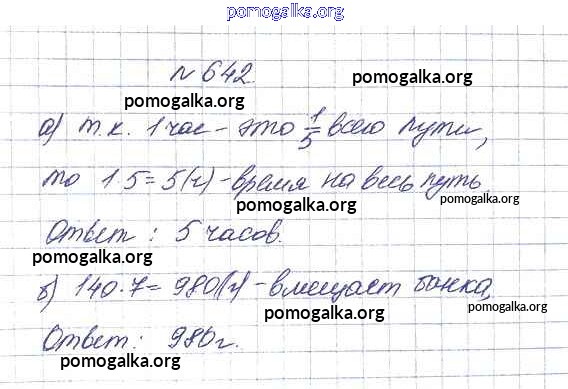 pomogalka.org
№ 642.
pomogalka.org
pomogalka.org
а) т.к. 1 час - это 1/5 всего пути,
pomogalka.org
то 1·5 = 5(ч) - время на весь путь.
pomogalka.org
pomogalka.org
Ответ: 5 часов.
pomogalka.org
б) 140·7 = 980(г) - вмещает банка,
pomogalka.org
pomogalka.org
Ответ: 980г.
pomogalka.org
pomogalka.org